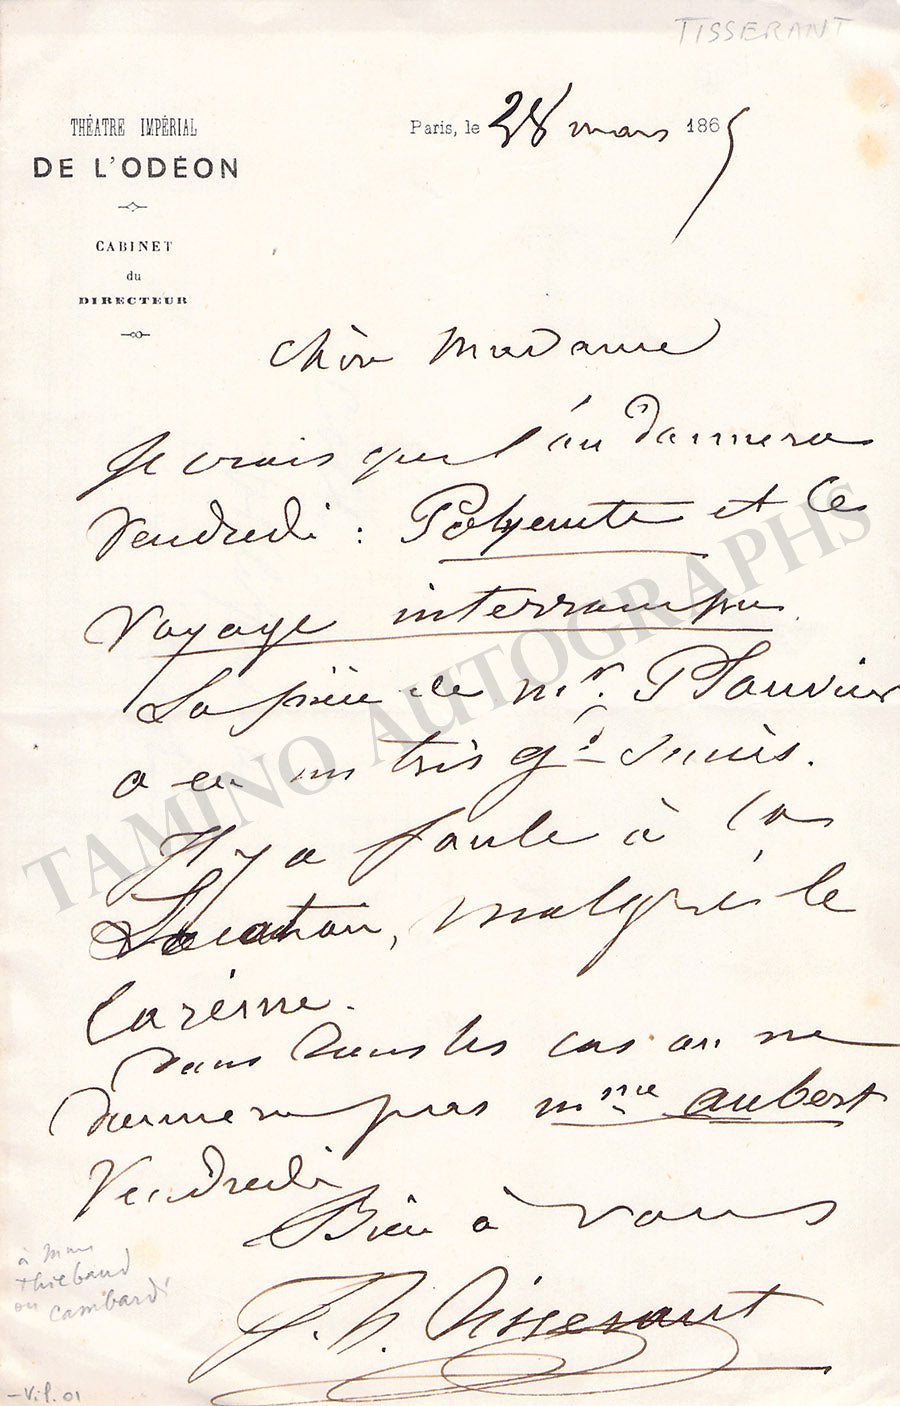 TISSERANT
THÉATRE IMPÉRIAL
DE L'ODÉON
CABINET
du
DIRECTEUR
Paris, le 28 mars 1865
Chère Madame
Je crois que l'on donnera
Vendredi : Polyeucte et le
Voyage interrompu
La pièce de Mr. Plouvier
a eu un très gd succès.
Il y a foule à la
Location, malgré le
Carême.
Dans tous les cas on ne
donnera pas Mme Aubert
Vendredi
Bien à vous
J. h. Tisserant
à Mme
Thiebaud
ou Cambardi
-Vil. 01
TAMINO AUTOGRAPHS